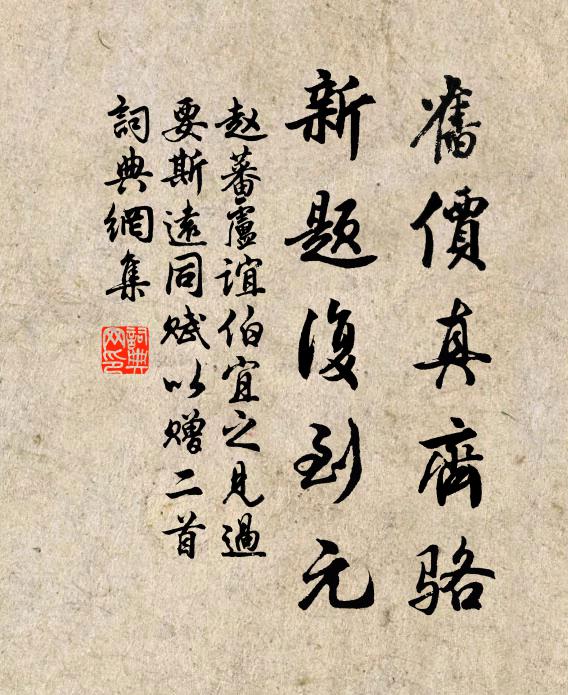 舊價真齊駱
新题復到元
赵蕃盧誼伯宜之見過
要斯遠同赋以赠二首
詞典網集
詞典网印